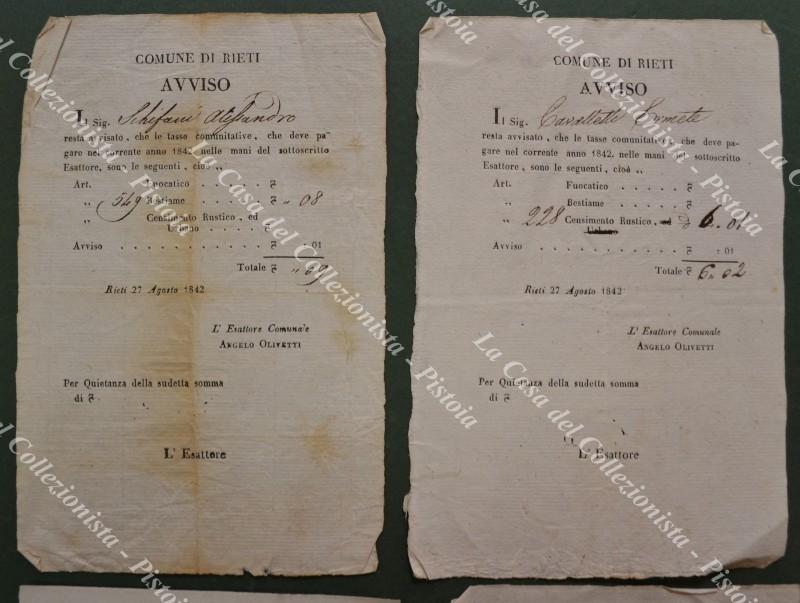 COMUNE DI RIETI
AVVISO
Il Sig. Stefani Alessandro
resta avvisato, che le tasse comunitative, che deve pa-
gare nel corrente anno 1842. nelle mani del sottoscritto
Esattore, sono le seguenti, cioè ,,
Art. Fuocatico . . . . .
,, 549 Bestiame . . . . . ,, 08
,, Censimento Rustico, ed
Urbano . . . .
Avviso . . . . . . . . . . : 01
Totale ,, 09
Rieti 27 Agosto 1842
L' Esattore Comunale
ANGELO OLIVETTI
Per Quietanza della sudetta somma
di
L' Esattore
COMUNE DI RIETI
AVVISO
Il Sig. Cavalletti Ermete
resta avvisato, che le tasse comunitative, che deve pa-
gare nel corrente anno 1842. nelle mani del sottoscritto
Esattore, sono le seguenti, cioè ,,
Art. Fuocatico . . . . .
,, Bestiame . . . . .
,, 228 Censimento Rustico, ed 6. 01
Urbano
Avviso . . . . . . . . . . : 01
Totale 6. 02
Rieti 27 Agosto 1842
L' Esattore Comunale
ANGELO OLIVETTI
Per Quietanza della sudetta somma
di
L' Esattore
La Casa del Collezionista - Pistoia